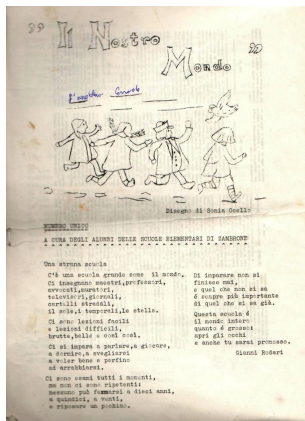 Il Nostro
Mondo
Disegno di Sonia Coello
NUMERO UNICO
A CURA DEGLI ALUNNI DELLE SCUOLE ELEMENTARI DI ZAMBRONE
Una strana scuola
C'è una scuola grande come il mondo.
Ci insegnano maestri,professori,
avvocati,muratori,
televisori,giornali,
cartelli stradali,
il sole,i temporali,le stelle.
Ci sono lezioni facili
e lezioni difficili,
brutte,belle e così così.
Ci si impara a parlare,a giocare,
a dormire,a svegliarsi
a voler bene e perfino
ad arrabbiarsi.
Ci sono esami tutti i momenti,
ma non ci sono ripetenti:
nessuno può fermarsi a dieci anni,
a quindici, a venti,
e riposare un pochino.
Di imparare non si
finisce mai,
e quel che non si sa
é sempre più importante
di quel che si sa già.
Questa scuola é
il mondo intero
quanto é grosso:
apri gli occhi
e anche tu sarai promosso.
Gianni Rodari